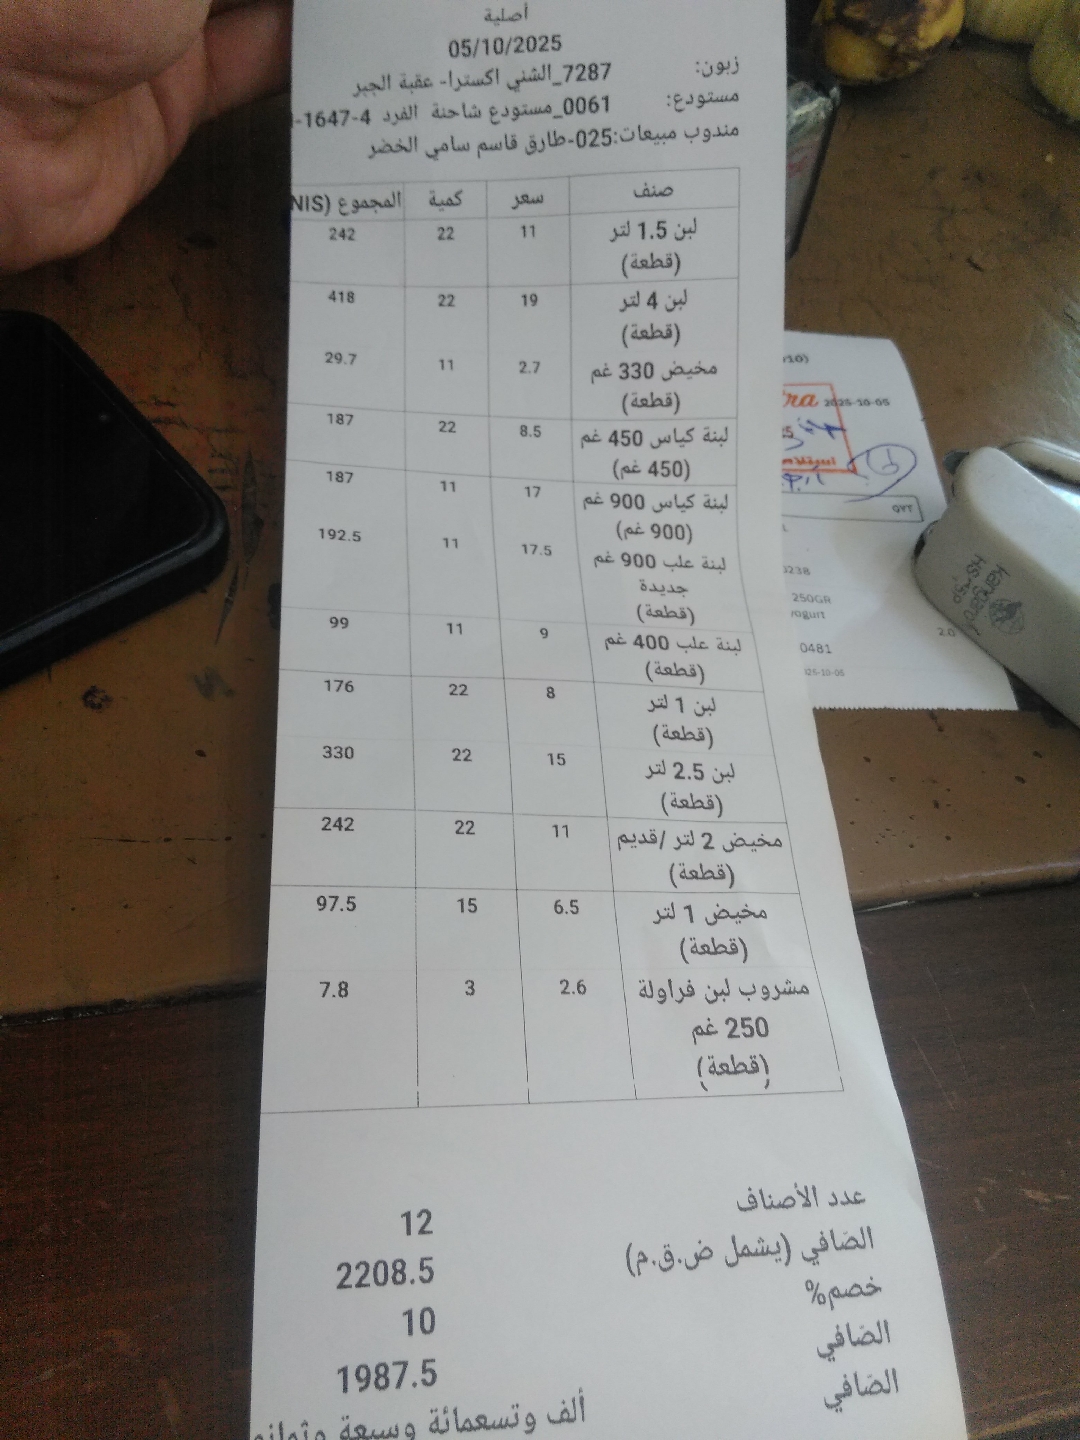 أصلية
05/10/2025
زبون: 7287_الشني اكسترا- عقبة الجبر
مستودع: 0061_مستودع شاحنة الفرد 4-1647-
مندوب مبيعات:025-طارق قاسم سامي الخضر
صنف سعر كمية المجموع (NIS
لبن 1.5 لتر 11 22 242
(قطعة)
لبن 4 لتر 19 22 418
(قطعة)
مخيض 330 غم 2.7 11 29.7
(قطعة)
لبنة كياس 450 غم 8.5 22 187
(450 غم)
لبنة كياس 900 غم 17 11 187
(900 غم)
لبنة علب 900 غم 17.5 11 192.5
جديدة
(قطعة)
لبنة علب 400 غم 9 11 99
(قطعة)
لبن 1 لتر 8 22 176
(قطعة)
لبن 2.5 لتر 15 22 330
(قطعة)
مخيض 2 لتر /قديم 11 22 242
(قطعة)
مخيض 1 لتر 6.5 15 97.5
(قطعة)
مشروب لبن فراولة 2.6 3 7.8
250 غم
(قطعة)
عدد الأصناف 12
الصّافي (يشمل ض.ق.م) 2208.5
خصم% 10
الصّافي 1987.5
الصّافي ألف وتسعمائة وسبعة وثمانو
2025-10-05
استلام
QTY
250GR
2.0
0481
Kangaro